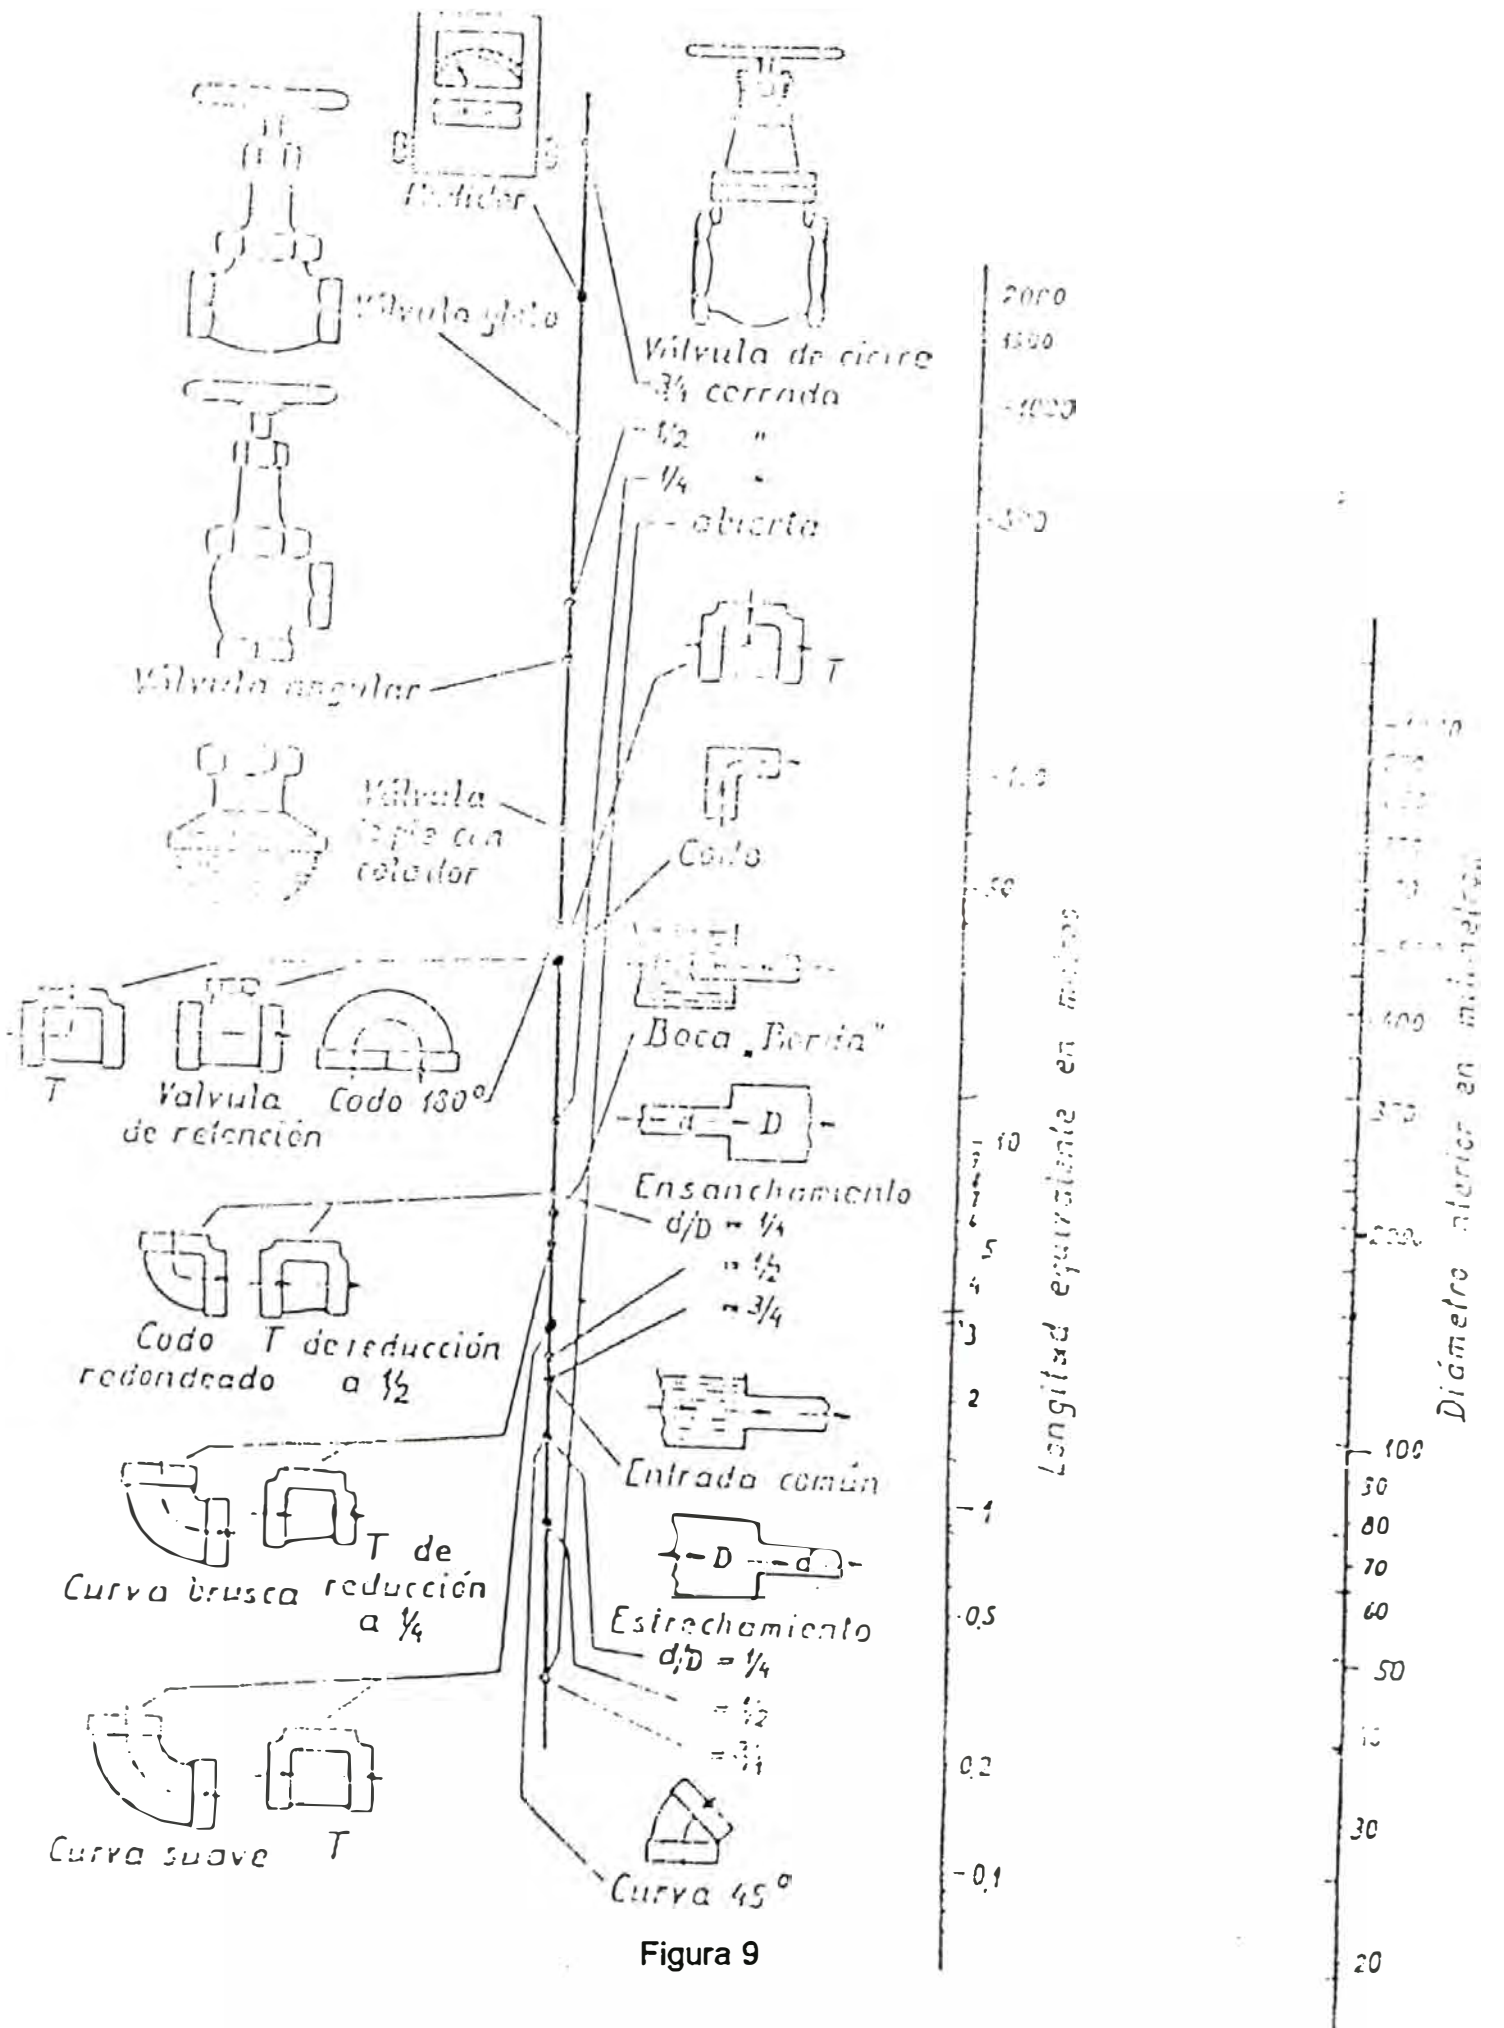 Medidor
Válvula
Válvula de cierre
3/4 cerrada
1/2 "
1/4 "
abierta
T
Válvula angular
Válvula
colador
Codo
T
Valvula
de retención
Codo 180°
Boca "Borda"
D
Ensanchamiento
d/D = 1/4
= 1/2
= 3/4
Codo
redondeado
T de reducción
a 1/2
Entrada común
Curva brusca
T de
reducción
a 1/4
D d
Estrechamiento
d/D = 1/4
= 1/2
= 3/4
Curva suave
T
Curva 45°
2000
1000
500
50
10
6
5
4
3
2
1
0,5
0,2
0,1
Longitud equivalente en metros
400
100
80
70
60
50
30
20
Diámetro interior en milímetros
Figura 9